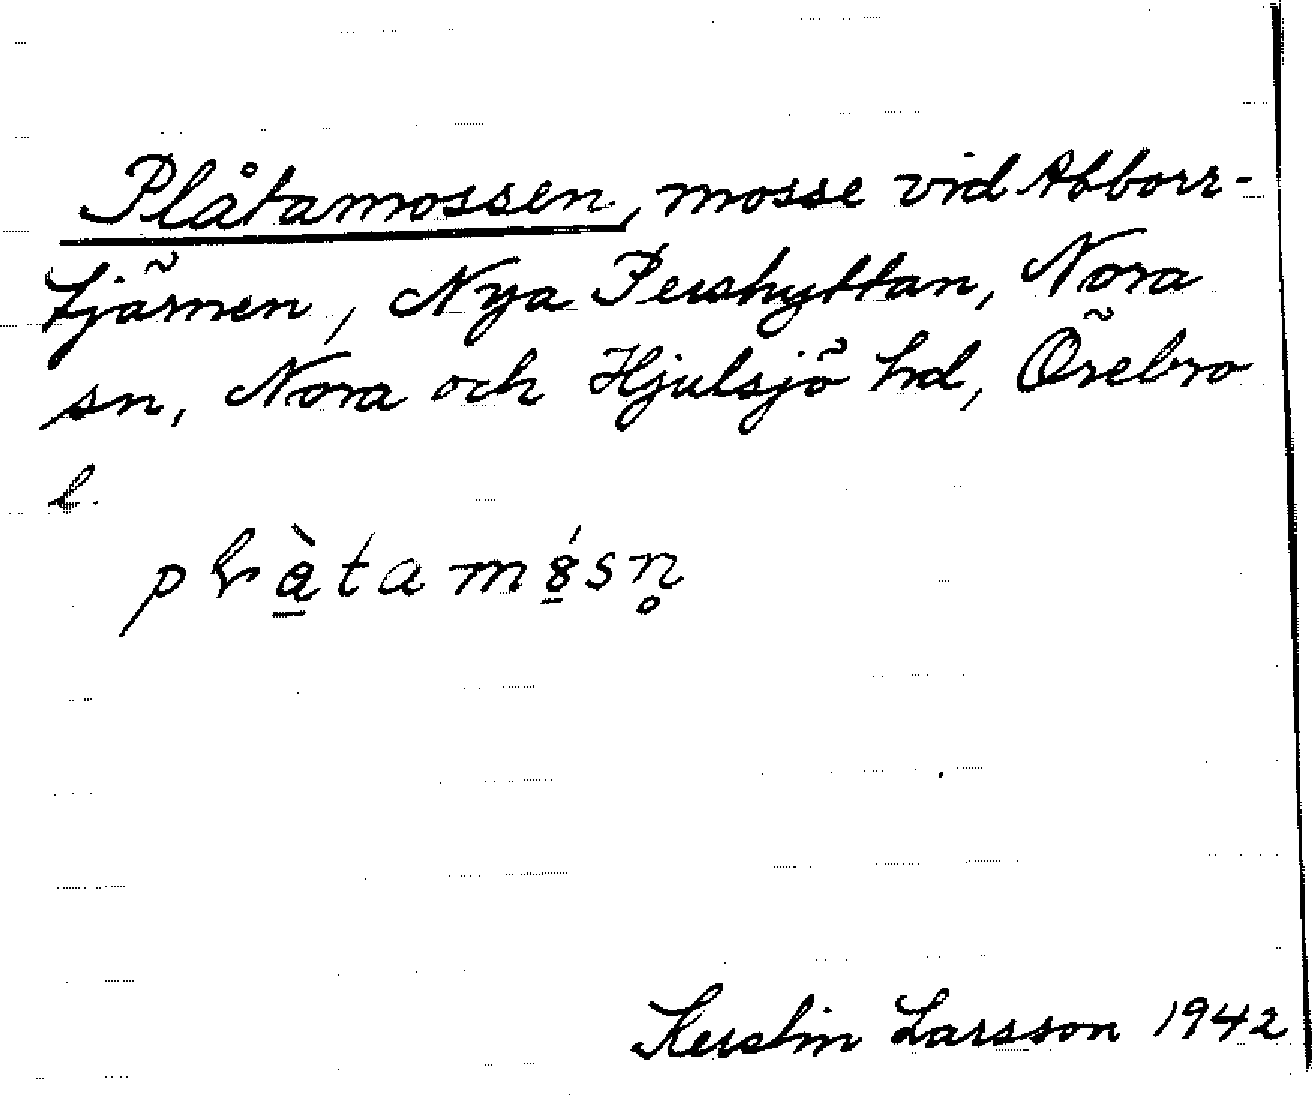 Plåtamossen, mosse vid Abborr-
tjärnen, Nya Pershyttan, Nora
sn, Nora och Hjulsjö hd, Örebro
l.
Kerstin Larsson 1942